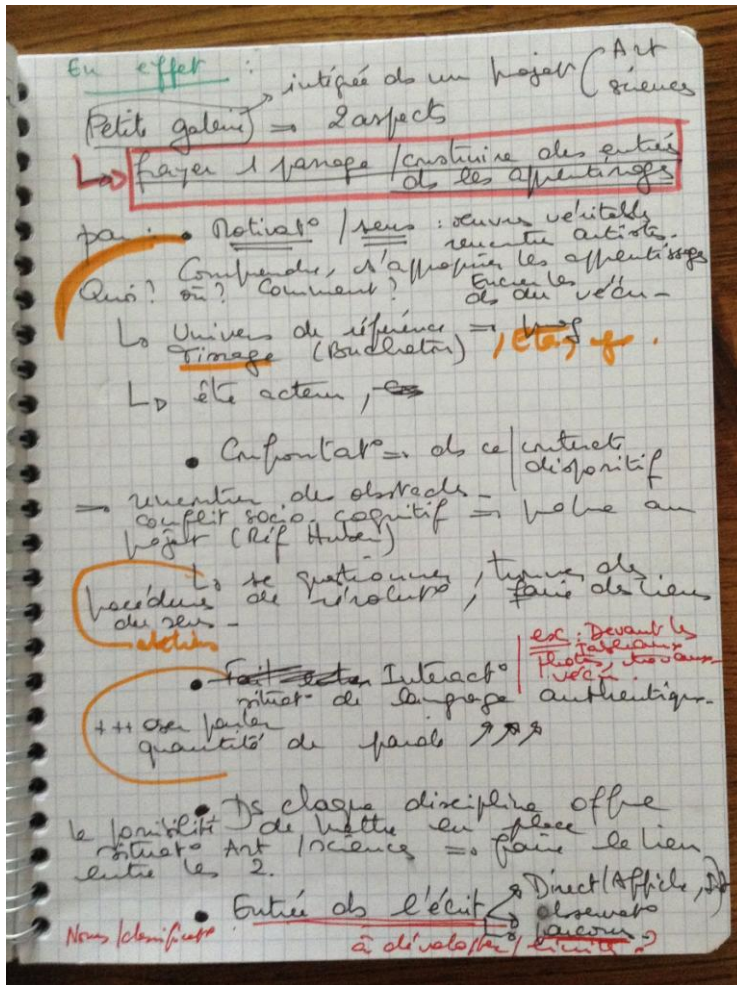 En effet :
intégrée ds un projet ( Art
sciences
(Petite galerie) => 2 aspects
↳ frayer 1 passage / construire des entrées
ds les apprentissages
par : • Motivat° / sens : œuvres véritables
rencontre artiste.
Comprendre, s'approprier les apprentissages
Quoi ? où ? Comment ? Ancrer les
ds du vécu -
↳ Univers de référence =>
Tissage (Bucheton)
↳ être acteur,
• Confrontat° => ds ce / contexte
dispositif
=> rencontrer des obstacles -
conflit socio. cognitif =>
projet (Réf Huber)
↳ se questionner, trouver des
procédures de résolut°, faire des liens
du sens -
ex : Devant les
tableaux
photos, travaux
vécu.
• Interact°
situat° de langage authentique.
+++ oser parler
quantité de parole ↗↗↗
• Ds chaque discipline offre
la possibilité de mettre en place
situat° Art / sciences => faire le lien
entre les 2.
• Entrée ds l'écrit Direct (Affiche,
observat°
parcours
Noms / classificat° à développer / limité ?